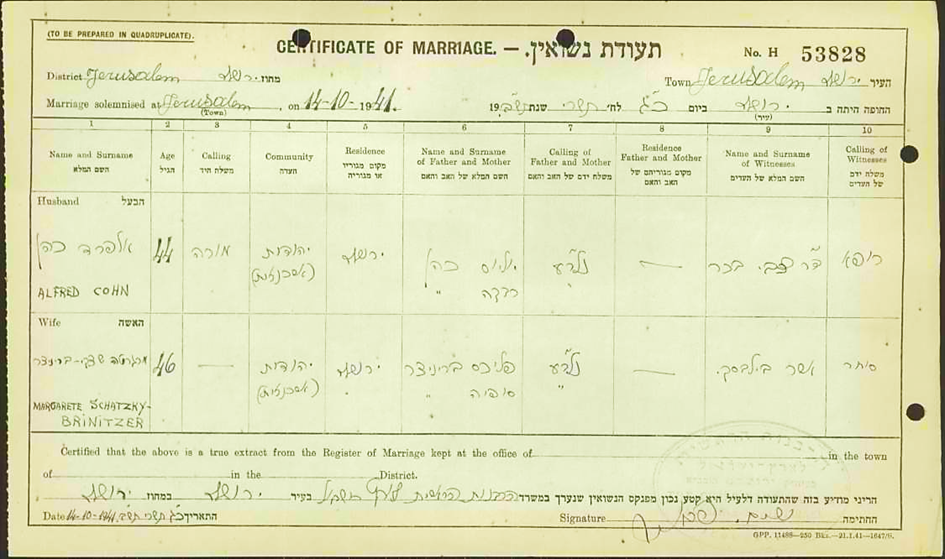 (TO BE PREPARED IN QUADRUPLICATE).
CERTIFICATE OF MARRIAGE. — תעודת נשואין.
No. H 53828
District Jerusalem ירושלים מחוז
Town Jerusalem ירושלים העיר
Marriage solemnised at Jerusalem, on 14-10-1941.
(Town)
החופה היתה ב ירושלים ביום כ"ג לח' תשרי שנת תש"ב
(עיר)
1 2 3 4 5 6 7 8 9 10
Name and Surname
השם המלא
Age
הגיל
Calling
משלח היד
Community
העדה
Residence
מקום מגוריו
או מגוריה
Name and Surname
of Father and Mother
השם המלא של האב והאם
Calling of
Father and Mother
משלח ידם של האב והאם
Residence
Father and Mother
מקום מגוריהם של
האב והאם
Name and Surname
of Witnesses
השם המלא של העדים
Calling of
Witnesses
משלח ידם
של העדים
Husband הבעל
אלפרד כהן
ALFRED COHN
44
מורה
יהודית
(אשכנזית)
ירושלים
יוליוס כהן
״
—
רופא
Wife האשה
MARGARETE SCHATZKY-
BRINITZER
46
—
יהודית
(אשכנזית)
ירושלים
פליכס בריניצר
סופיה ״
״
—
אשר
סוחר
Certified that the above is a true extract from the Register of Marriage kept at the office of in the town
of in the District.
הריני מודיע בזה שהתעודה דלעיל היא קטע נכון מפנקס הנשואין שנערך במשרד הרבנות הראשית בעיר ירושלים במחוז ירושלים
Date 14-10-1941 כ"ג תשרי תש"ב התאריך
Signature החתימה
GPP. 11488—250 Bks.—21.1.41—1647/6.